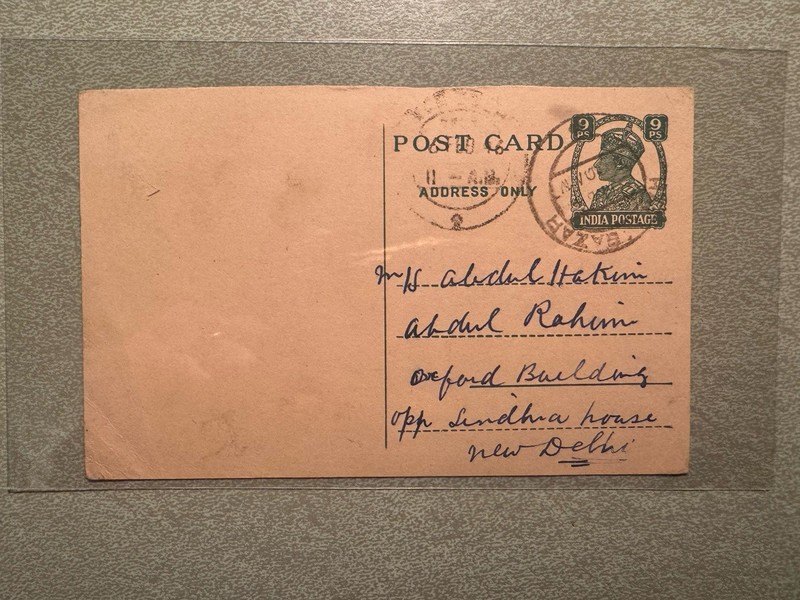 POST CARD
ADDRESS ONLY
9 PS
9 PS
INDIA POSTAGE
11 - A.M.
BAZAR
M/s Abdul Hakim
Abdul Rahim
Oxford Building
opp Sindhia house
New Delhi